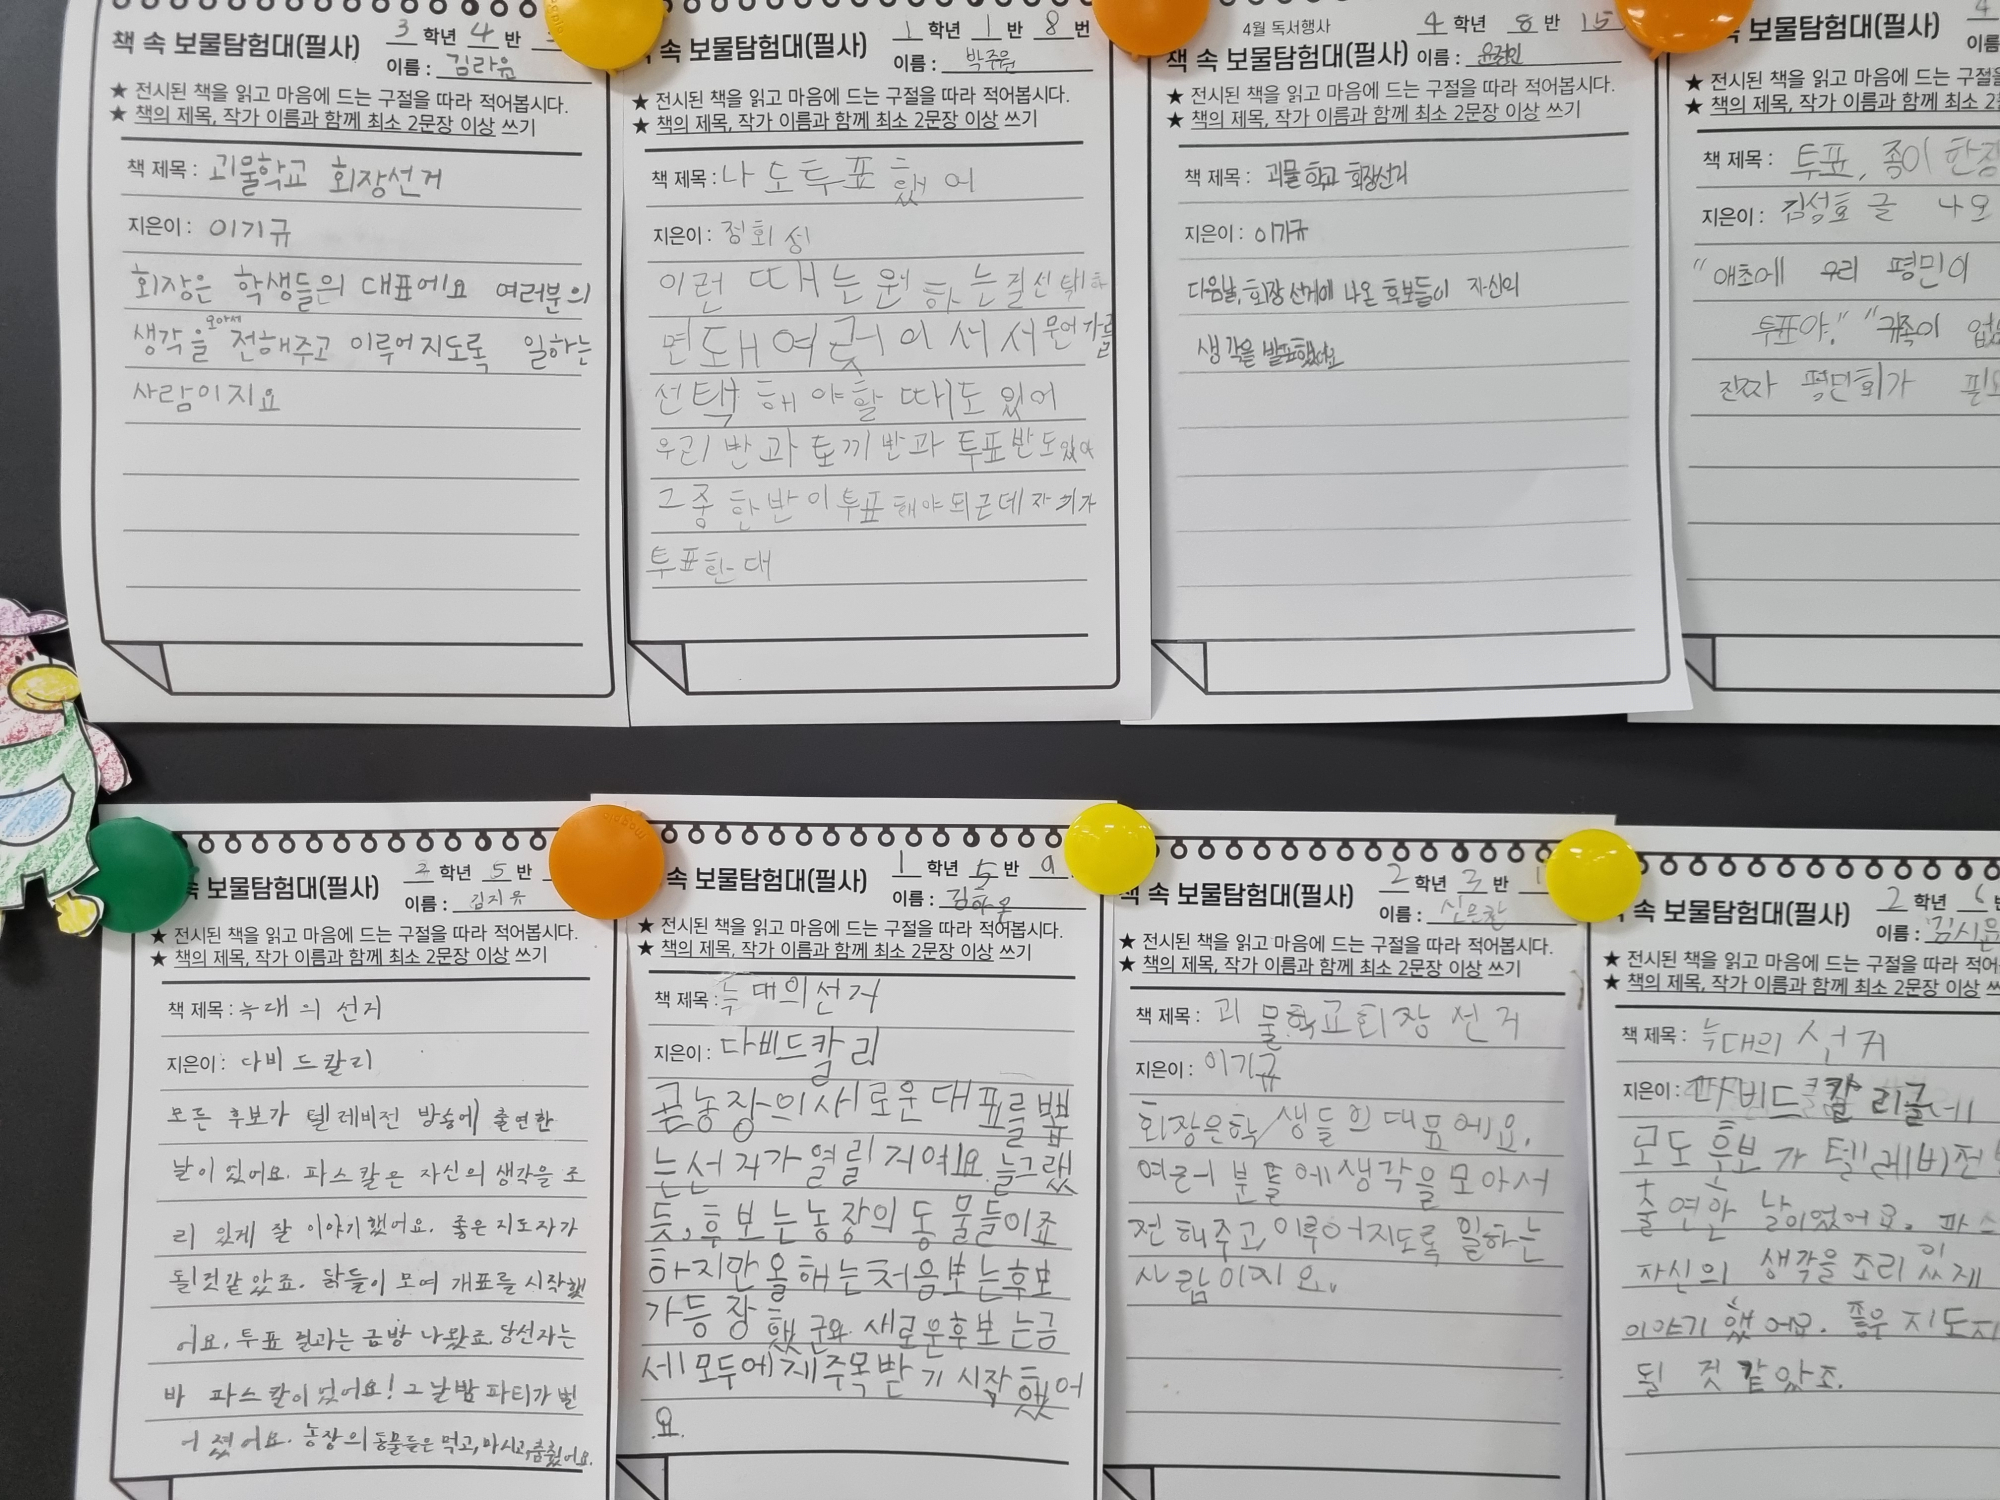 책 속 보물탐험대(필사)
3 학년 4 반
이름 : 김라음
★ 전시된 책을 읽고 마음에 드는 구절을 따라 적어봅시다.
★ 책의 제목, 작가 이름과 함께 최소 2문장 이상 쓰기
책 제목 : 괴물학교 회장선거
지은이 : 이기규
회장은 학생들의 대표에요 여러분의
생각을 모아서 전해주고 이루어지도록 일하는
사람이지요
속 보물탐험대(필사)
1 학년 1 반 8 번
이름 : 박주원
★ 전시된 책을 읽고 마음에 드는 구절을 따라 적어봅시다.
★ 책의 제목, 작가 이름과 함께 최소 2문장 이상 쓰기
책 제목 : 나도투표했어
지은이 : 정회성
이런 때는 원하는걸선택하
면돼여럿이서서
선택해야할때도있어
우리반과토끼반과 투표반도있어
그중 한반이투표해야되근데자기가
투표한대
4월 독서행사
책 속 보물탐험대(필사)
4 학년 8 반 15
이름 :
★ 전시된 책을 읽고 마음에 드는 구절을 따라 적어봅시다.
★ 책의 제목, 작가 이름과 함께 최소 2문장 이상 쓰기
책 제목 : 괴물학교 회장선거
지은이 : 이기규
다음날, 회장 선거에 나온 후보들이 자신의
생각을 발표했어요
속 보물탐험대(필사)
4
이름
★ 전시된 책을 읽고 마음에 드는 구절
★ 책의 제목, 작가 이름과 함께 최소 2
책 제목 : 투표, 종이 한장
지은이 : 김성호 글 나오
"애초에 우리 평민이
투표야." "귀족이 없
진짜 평민회가 필요
속 보물탐험대(필사)
2 학년 5 반
이름 : 김지유
★ 전시된 책을 읽고 마음에 드는 구절을 따라 적어봅시다.
★ 책의 제목, 작가 이름과 함께 최소 2문장 이상 쓰기
책 제목 : 늑대의 선거
지은이 : 다비드칼리
모든 후보가 텔레비전 방송에 출연한
날이 있어요. 파스칼은 자신의 생각을 조
리 있게 잘 이야기했어요. 좋은 지도자가
될것같았죠. 닭들이 모여 개표를 시작했
어요. 투표 결과는 금방 나왔죠. 당선자는
바 파스칼이었어요! 그날밤 파티가 벌
어졌어요. 농장의 동물들은 먹고, 마시고, 춤췄어요.
속 보물탐험대(필사)
1 학년 5 반 9
이름 : 김하온
★ 전시된 책을 읽고 마음에 드는 구절을 따라 적어봅시다.
★ 책의 제목, 작가 이름과 함께 최소 2문장 이상 쓰기
책 제목 : 늑대의선거
지은이 : 다비드칼리
곧농장의새로운대표를뽑
는선거가열릴거여요. 늘그랬
듯, 후보는농장의동물들이죠
하지만올해는처음보는후보
가등장했군요. 새로운후보는금
세모두에게주목받기시작했어
요.
책 속 보물탐험대(필사)
2 학년 3 반 1
이름 : 신은찬
★ 전시된 책을 읽고 마음에 드는 구절을 따라 적어봅시다.
★ 책의 제목, 작가 이름과 함께 최소 2문장 이상 쓰기
책 제목 : 괴물학교회장선거
지은이 : 이기규
회장은학생들의대표에요.
여러분들에생각을모아서
전해주고, 이루어지도록 일하는
사람이지요.
속 보물탐험대(필사)
2 학년 6 반
이름 : 김시윤
★ 전시된 책을 읽고 마음에 드는 구절을 따라 적어
★ 책의 제목, 작가 이름과 함께 최소 2문장 이상 쓰
책 제목 : 늑대의 선거
지은이 : 다비드 칼리글
모도 후보가 텔레비전
출연한 날이었어요. 파스
자신의 생각을 조리 있게
이야기했어요. 좋은 지도자
될 것 같았죠.